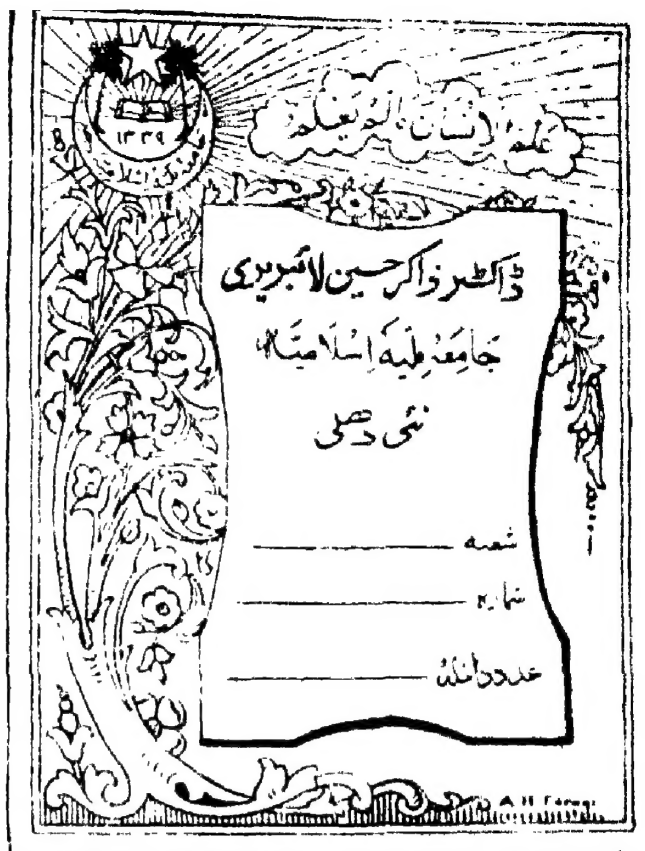 عَلَّمَ الْاِنْسَانَ مَالَمْ يَعْلَمْ
۱۳۳۹
ڈاکٹر ذاکر حسین لائبریری
جَامعَہ مِلّیہَ اِسْلَامیَّہ
نئی دھلی
شعبہ
شمارہ
عدد داخلہ
A H Faruqi